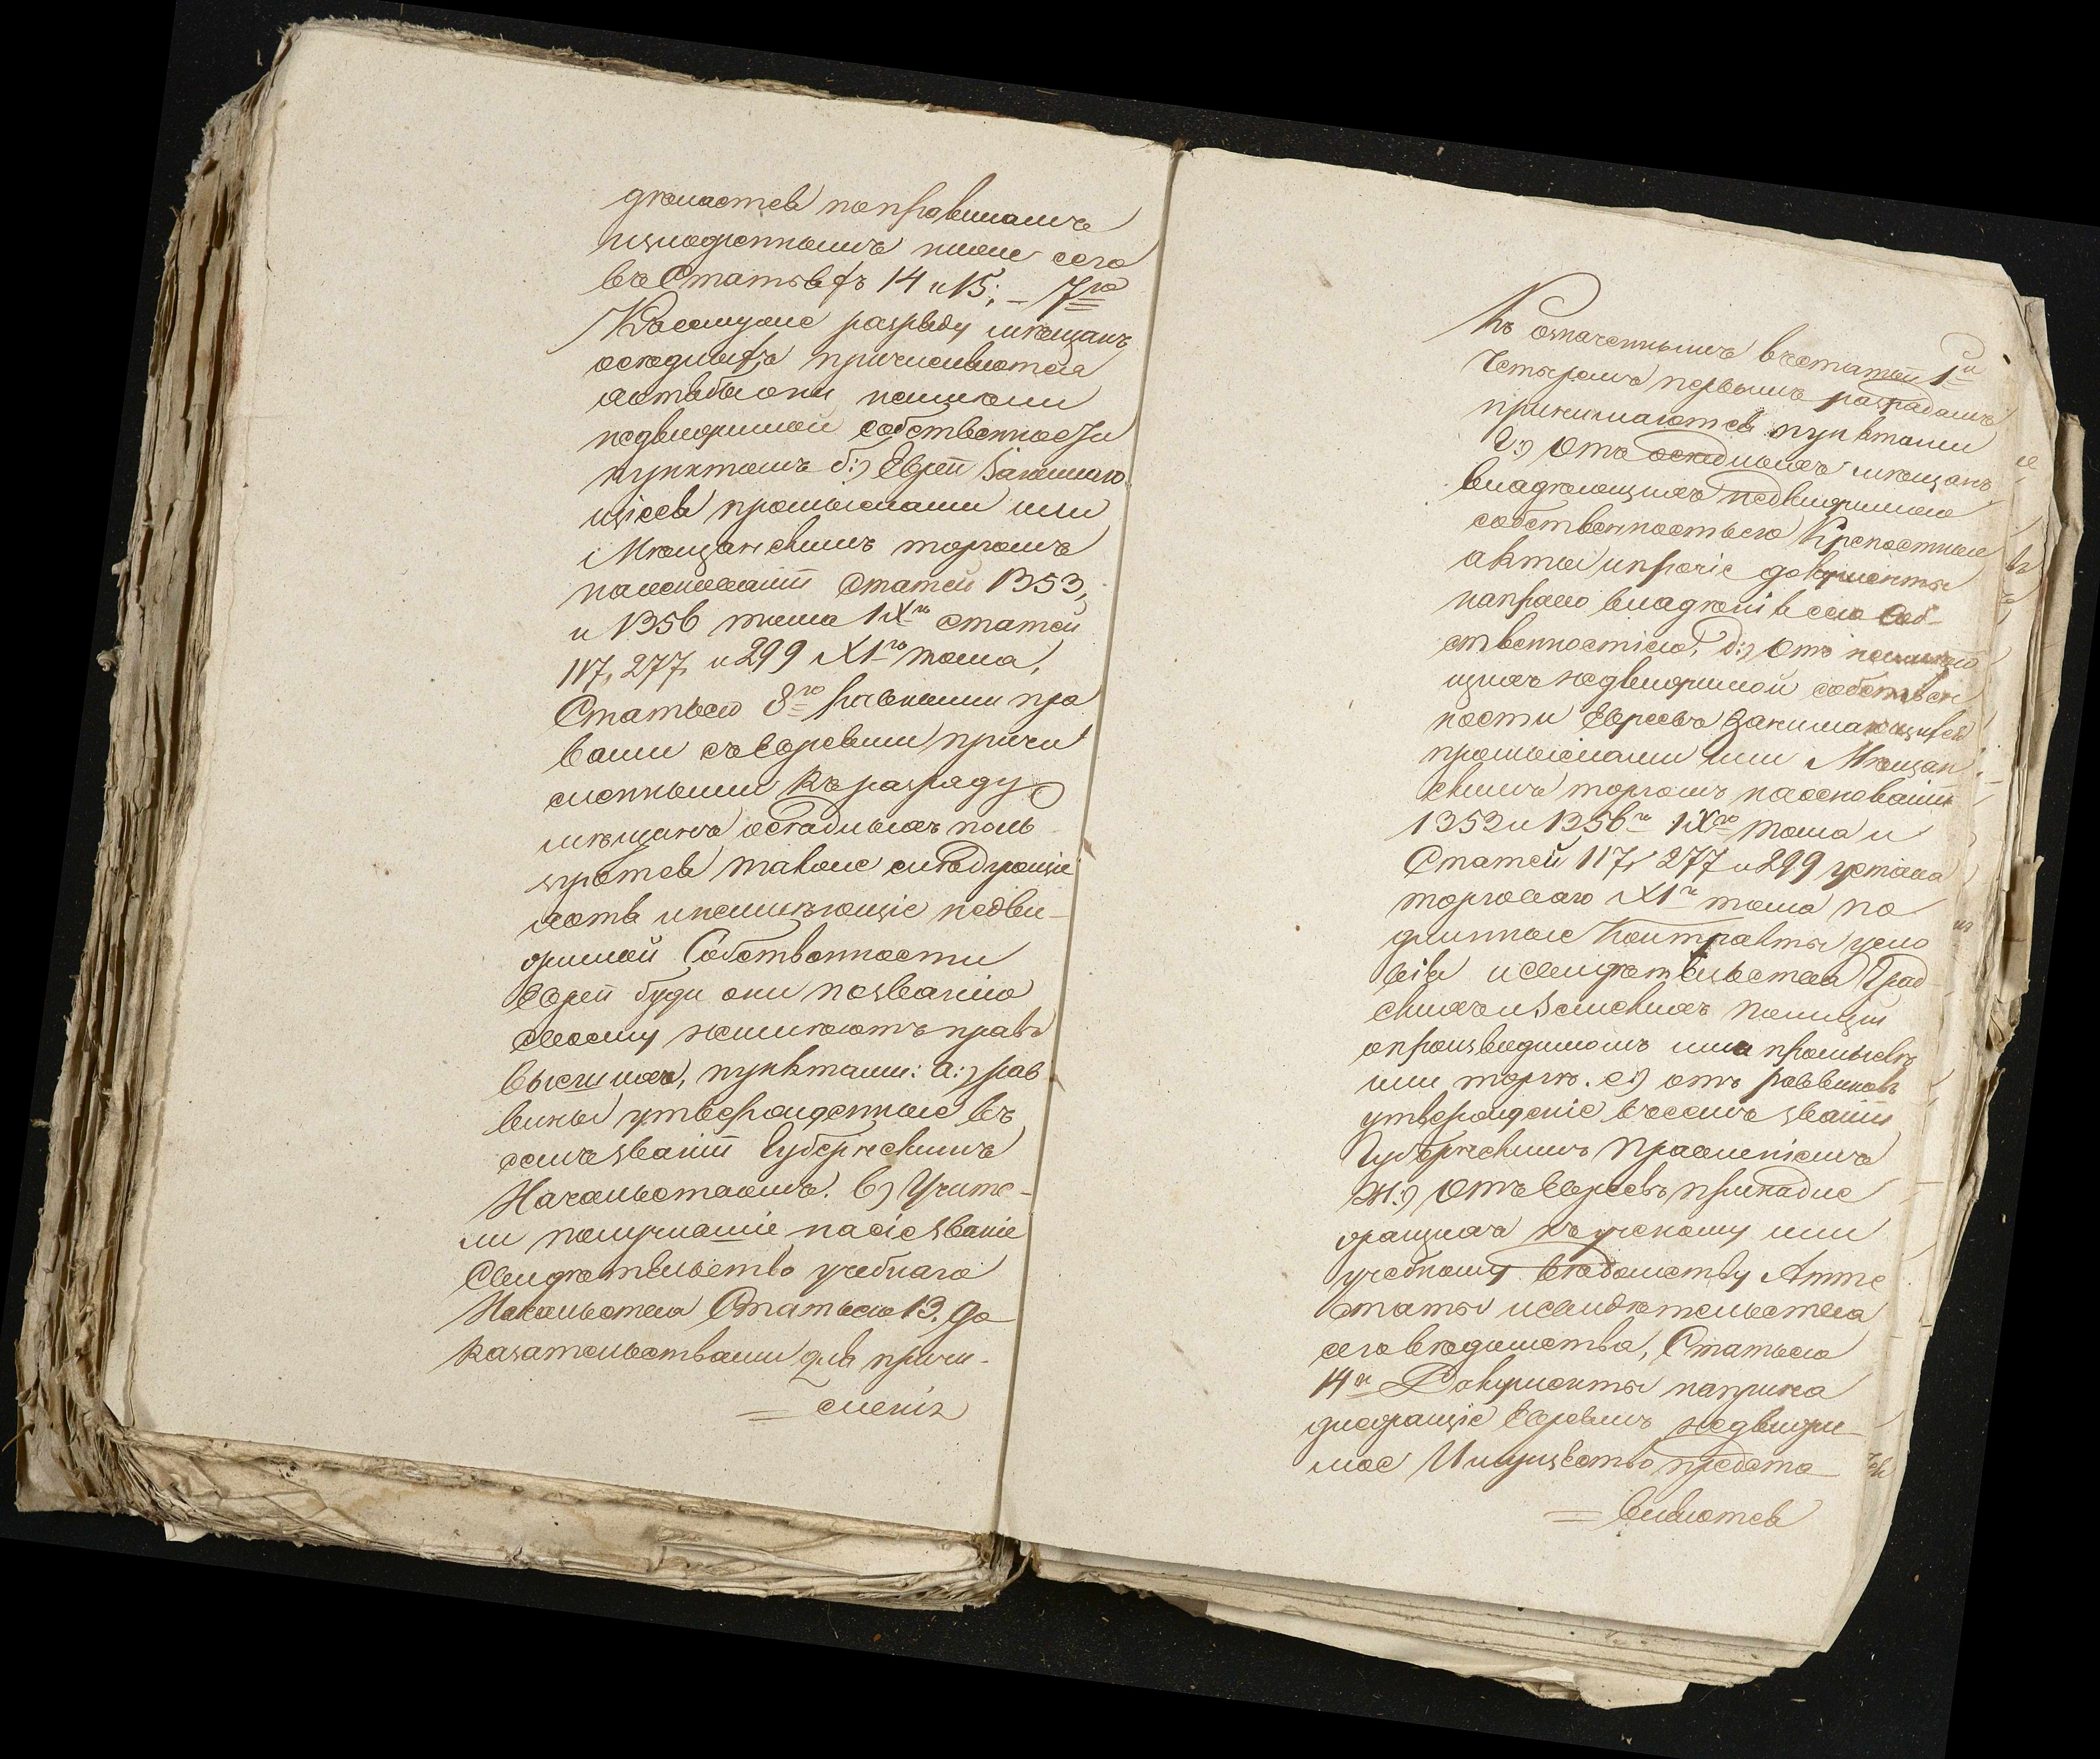 дѣлается по правиламъ
изложеннымъ ниже сего
въ Статьяхъ 14 и 15; – 7ю
Къ сему же разряду мѣщанъ
осѣдлыхъ причисляются
хотябы они не имѣли
недвижимой собственности
пунктомъ б:) Евреи занимаю
щіеся промыслами или
Мѣщанскимъ торгомъ
на основаніи Статей 1353,
и 1356 тома IXго Статей
117, 277, и 299 XIго тома,
Статьею 8ю равными пра
вами съ Евреями причи
сленными къ разряду
мѣщанъ осѣдлыхъ поль
зуются также слѣдующіе
хотя и не имѣющіе недви-
жимой Собственности
Евреи буде они по званію
своему не имѣютъ правъ
высшихъ, пунктами: а:) рав
вины утвержденные въ
семъ званіи Губернскимъ
Начальствомъ. в) Учите-
ли получившіе на сіе званіе
Свидѣтельство учебнаго
Начальства Статьею 13. до
казательствами для причи-
= сленія
Къ означеннымъ въ статьѣ 1й
Четыремъ первымъ разрядамъ
принимаются пунктами
г:) Отъ осѣдлыхъ мѣщанъ
владѣющихъ недвижимою
собственностью Крѣпостные
акты и прочіе документы
на право владѣнія сею Соб-
ственностію, д:) Отъ неимѣю
щихъ недвижимой собствен
ности Евреевъ занимающихся
промыслами или Мѣщан
скимъ торгомъ на основаніи
1353 и 1356й IXго тома и
Статей 117, 277 и 299 устава
торговаго XIго тома по
длинные Контракты усло
вія и свидѣтельства Град
скихъ и Земскихъ полицій
о производимомъ ими промыслѣ
или торгѣ. е:) отъ раввиновъ
утвержденіе въ семъ званіи
Губернскимъ Правленіемъ
Ж:) Отъ Евреевъ принадле
жащихъ къ ученому или
учебному вѣдомству Атте
статы и свидѣтельства
сего вѣдомства, Статьею
14ю Документы на прина
длежащіе Евреямъ недвижи
мое Имущество предста
= вляются